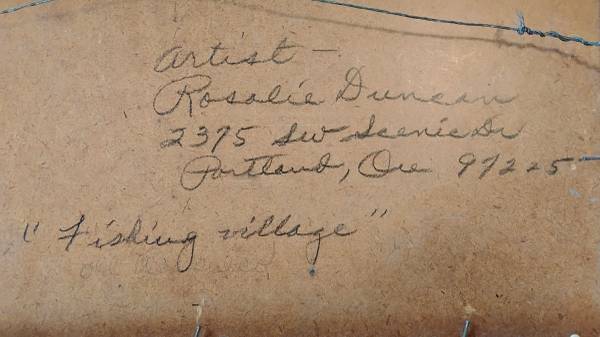 Artist -
Rosalie Duncan
2375 SW Scenic Dr
Portland, Ore 97225
"Fishing village"